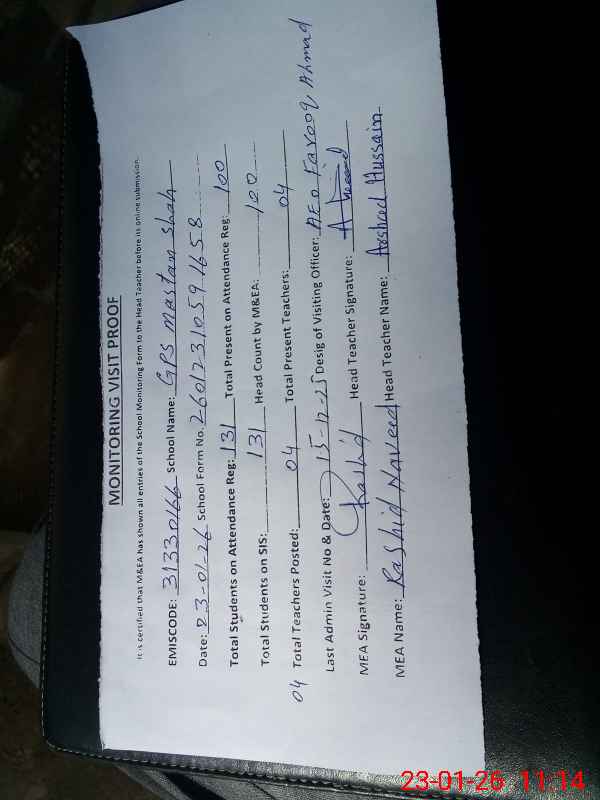 MONITORING VISIT PROOF
It is certified that M&EA has shown all entries of the School Monitoring Form to the Head Teacher before its online submission.
EMISCODE: 31330166 School Name: GPS Mastan Shah
Date: 23-01-26 School Form No. 2601231059 1658
Total Students on Attendance Reg: 131 Total Present on Attendance Reg: 100
Total Students on SIS: 131 Head Count by M&EA: 100
04 Total Teachers Posted: 04 Total Present Teachers: 04
Last Admin Visit No & Date: 15-12-25 Desig of Visiting Officer: AEO Farooq Ahmad
MEA Signature: Rashid Head Teacher Signature:
MEA Name: Rashid Naveed Head Teacher Name: Arshad Hussain
23-01-26 11:14